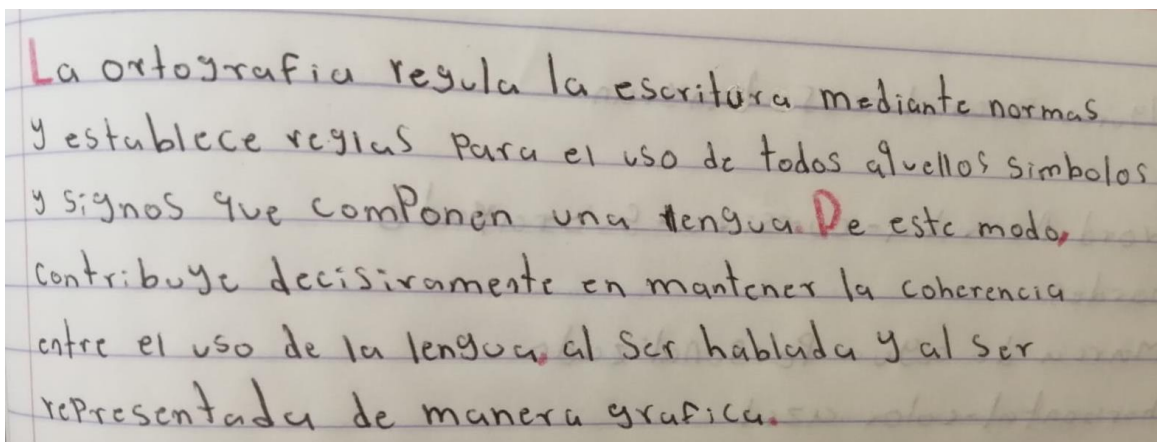 La ortografia regula la escritura mediante normas
y establece reglas para el uso de todos aquellos simbolos
y signos que componen una lengua. De este modo,
contribuye decisivamente en mantener la coherencia
entre el uso de la lengua, al ser hablada y al ser
representada de manera grafica.